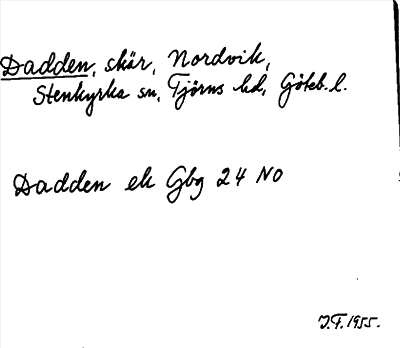 Dadden, skär, Nordvik,
Stenkyrka sn, Tjörns hd, Göteb. l.
Dadden ek Gbg 24 NO
J.F. 1955.